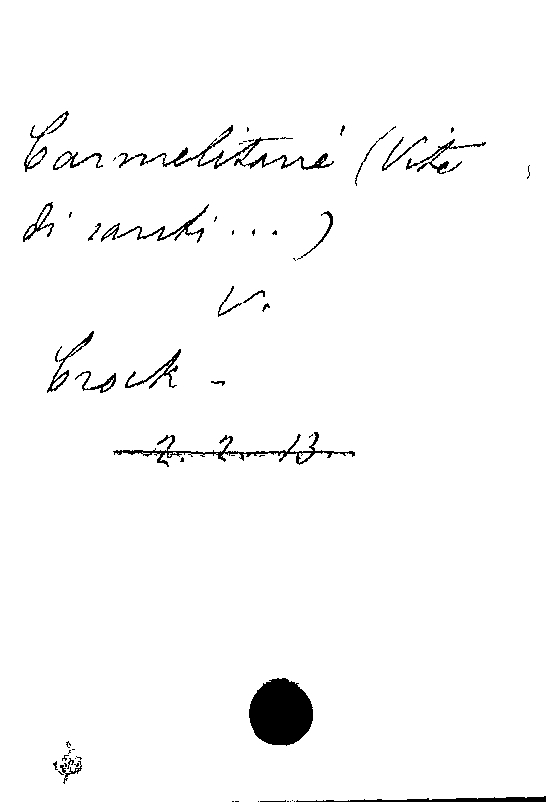 Carmelitani (Vite
di santi ...)
V.
Crock -
2. 2. 13.